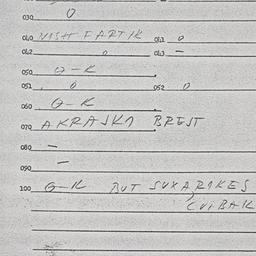 030 0
040 NISHT FARTIK 041 0
042 0 043 —
050 G-K
051 0 052 0
060 G-K
070 A KRASKN BREIT
080 —
090 —
100 G-K BUT SUXARIKES
CUIBAK